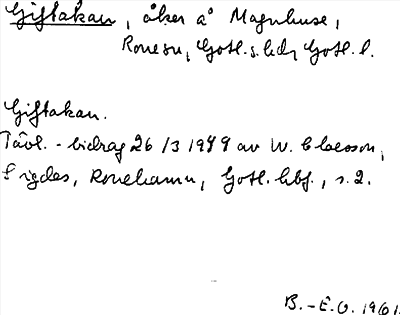 Giftakan, åker å Magnhuse,
Ronesn, Gotl.s.hdr, Gotl. l.
Giftakan.
Tävl.-bidrag 26/3 1949 av W. Claesson,
Frigdes, Ronehamn, Gotl. hbf., s.2.
B.-E.O. 1961.